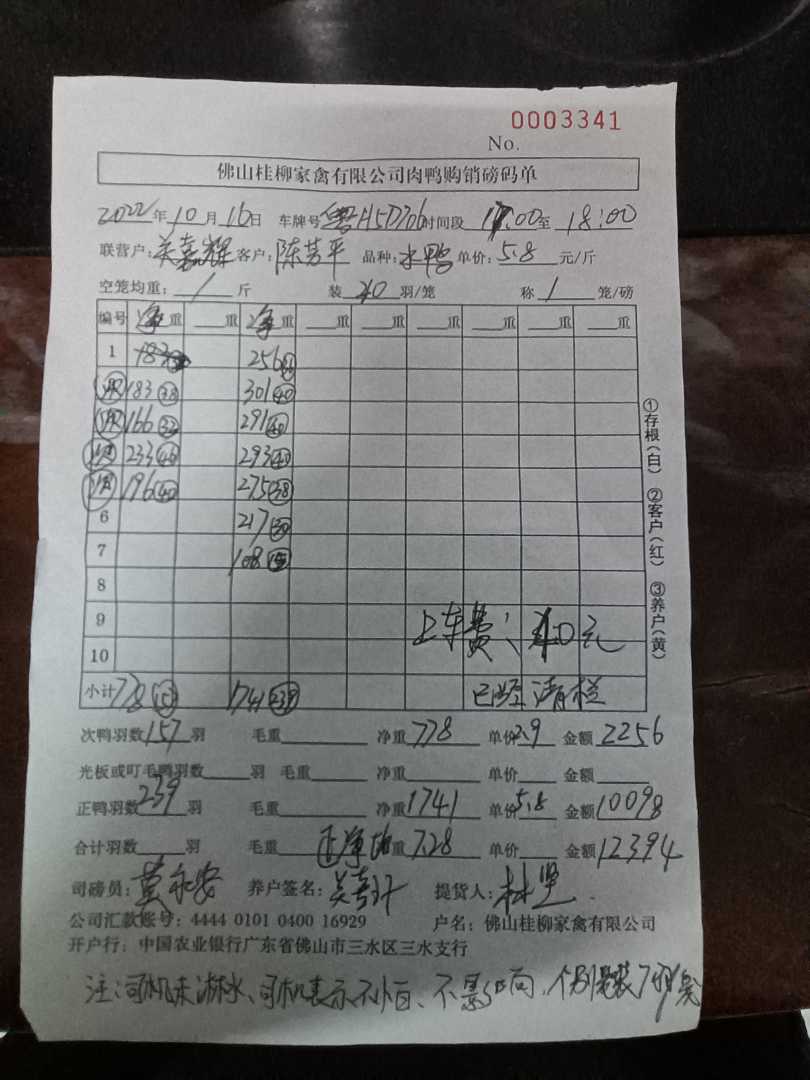 0003341
No.
佛山桂柳家禽有限公司肉鸭购销磅码单
2022年10月16日 车牌号 粤H5D706 时间段 17:00至18:00
联营户:关嘉辉 客户:陈芳平 品种:水鸭 单价:5.8元/斤
空笼均重:1斤 装 10羽/笼 称 1 笼/磅
编号 净重 重 净重 重 重 重 重 重
1 183 256
次 183(38) 301(40)
次 166(32) 291(40)
次 233(46) 293(40)
次 196(40) 275(38)
6 217(30)
7 108(15)
8
9 上车费: 10元
10
小计 778 1741(239) 已经清栏
次鸭羽数157羽 毛重 净重778 单价2.9 金额2256
光板或叮毛鸭羽数 羽 毛重 净重 单价 金额
正鸭羽数239羽 毛重 净重1741 单价5.8 金额10098
合计羽数 羽 毛重 正净均重7.28 单价 金额12394
司磅员:黄永安 养户签名: 提货人:林坚
公司汇款账号:4444 0101 0400 16929 户名:佛山桂柳家禽有限公司
开户行:中国农业银行广东省佛山市三水区三水支行
注:司机未淋水、司机表示不
①存根(白) ②客户(红) ③养户(黄)